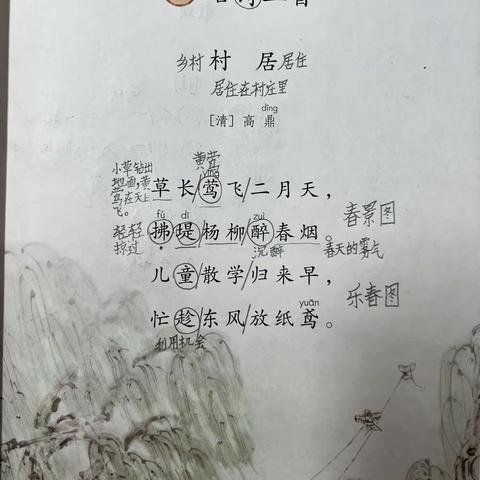 古诗二首
乡村 村 居 居住
居住在村庄里
dǐng
[清] 高 鼎
黄莺
小草钻出
地面,黄
莺在天上
飞。
草长/莺飞/二月天,
fú dī zuì
轻轻
掠过
拂堤杨柳/醉春烟。
沉醉 春天的雾气
春景图
儿童/散学/归来早,
乐春图
yuān
忙趁/东风/放纸鸢。
利用机会